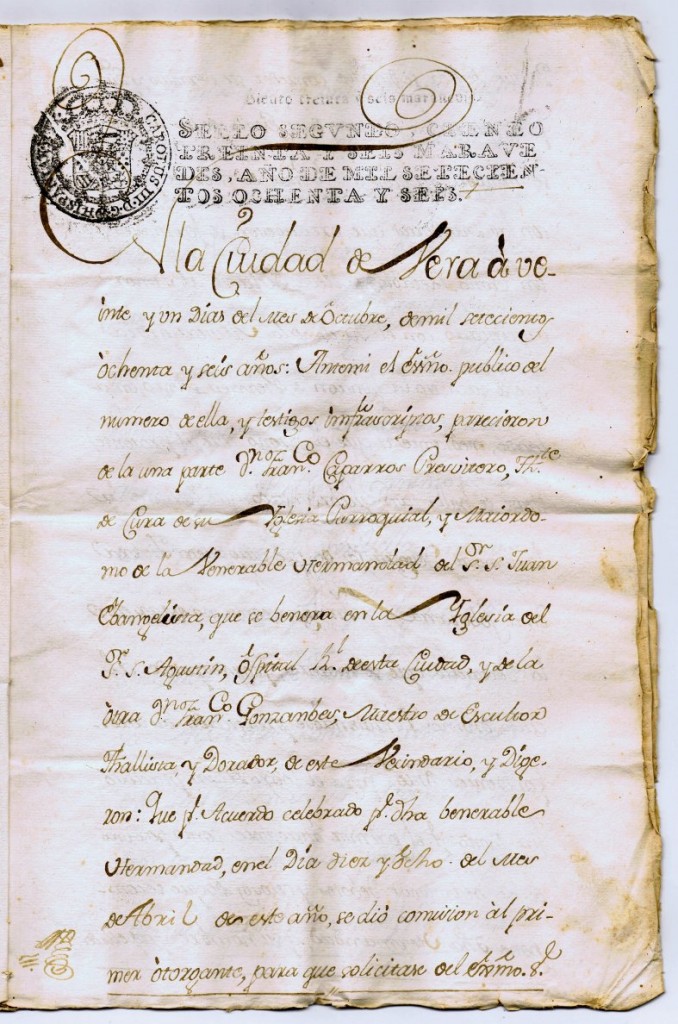 SELLO SEGVNDO, CIENTO
TREINTA Y SEIS MARAVE
DIS, AÑO DE MIL SETECIEN-
TOS OCHENTA Y SEIS.
CAROLUS III D.G. HISPAN
la Ciudad de Vera à ve-
inte y un Dias del Mes de Octubre, de mil setecientos
òchenta y seis años: Antemi el Essno. publico del
numero de ella, y testigos infrascriptos, parecieron
de la una parte Dn. Franco. Caparros Presvitero, Thte.
de Cura de su Yglesia Parroquial, y Maiordo-
mo de la Venerable Hermandad del Sr. S. Juan
Ebangelista, que se benera en la Yglesia del
Sr. S. Agustin, ospital Rl. de esta Ciudad, y de la
òtra Dn. Franco. Gonzanbes, Maestro de Escultor
Thallista, y Dorador, de este Vecindario, y Dige-
ron: Que pr. Acuerdo celebrado pr. dha benerable
Hermandad, en el Dia diez y òcho del Mes
de Abril de este año, se diò comision àl pri-
mer òtorgante, para que solicitase del Essmo. Sr.